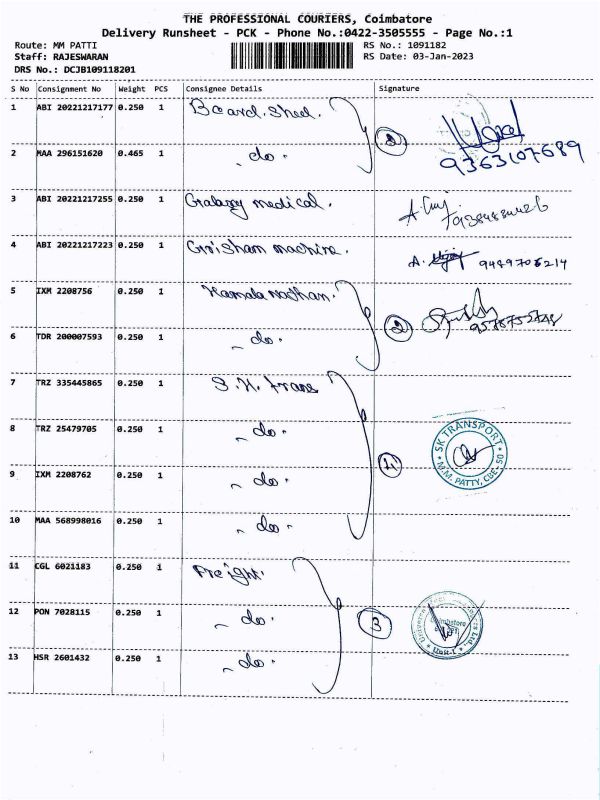 THE PROFESSIONAL COURIERS, Coimbatore
Delivery Runsheet - PCK - Phone No.:0422-3505555 - Page No.:1
Route: MM PATTI RS No.: 1091182
Staff: RAJESWARAN RS Date: 03-Jan-2023
DRS No.: DCJB109118201
S No Consignment No Weight PCS Consignee Details Signature
1 ABI 20221217177 0.250 1 Board. Sheel.
2 MAA 296151620 0.465 1 - do - 2 9363107689
3 ABI 20221217255 0.250 1 Gralaxy medical.
4 ABI 20221217223 0.250 1 Grisham machine. A.
5 IXM 2208756 0.250 1 Kamala nathan. 2
6 TDR 200007593 0.250 1 - do -
7 TRZ 335445865 0.250 1 S.K. trans
8 TRZ 25479705 0.250 1 - do - 4 SK TRANSPORT M.M. PATTY, CBE-SO
9 IXM 2208762 0.250 1 - do -
10 MAA 568998016 0.250 1 - do -
11 CGL 6021183 0.250 1 Freight.
12 PON 7028115 0.250 1 - do - 3 Coimbatore Unit-1
13 HSR 2601432 0.250 1 - do -